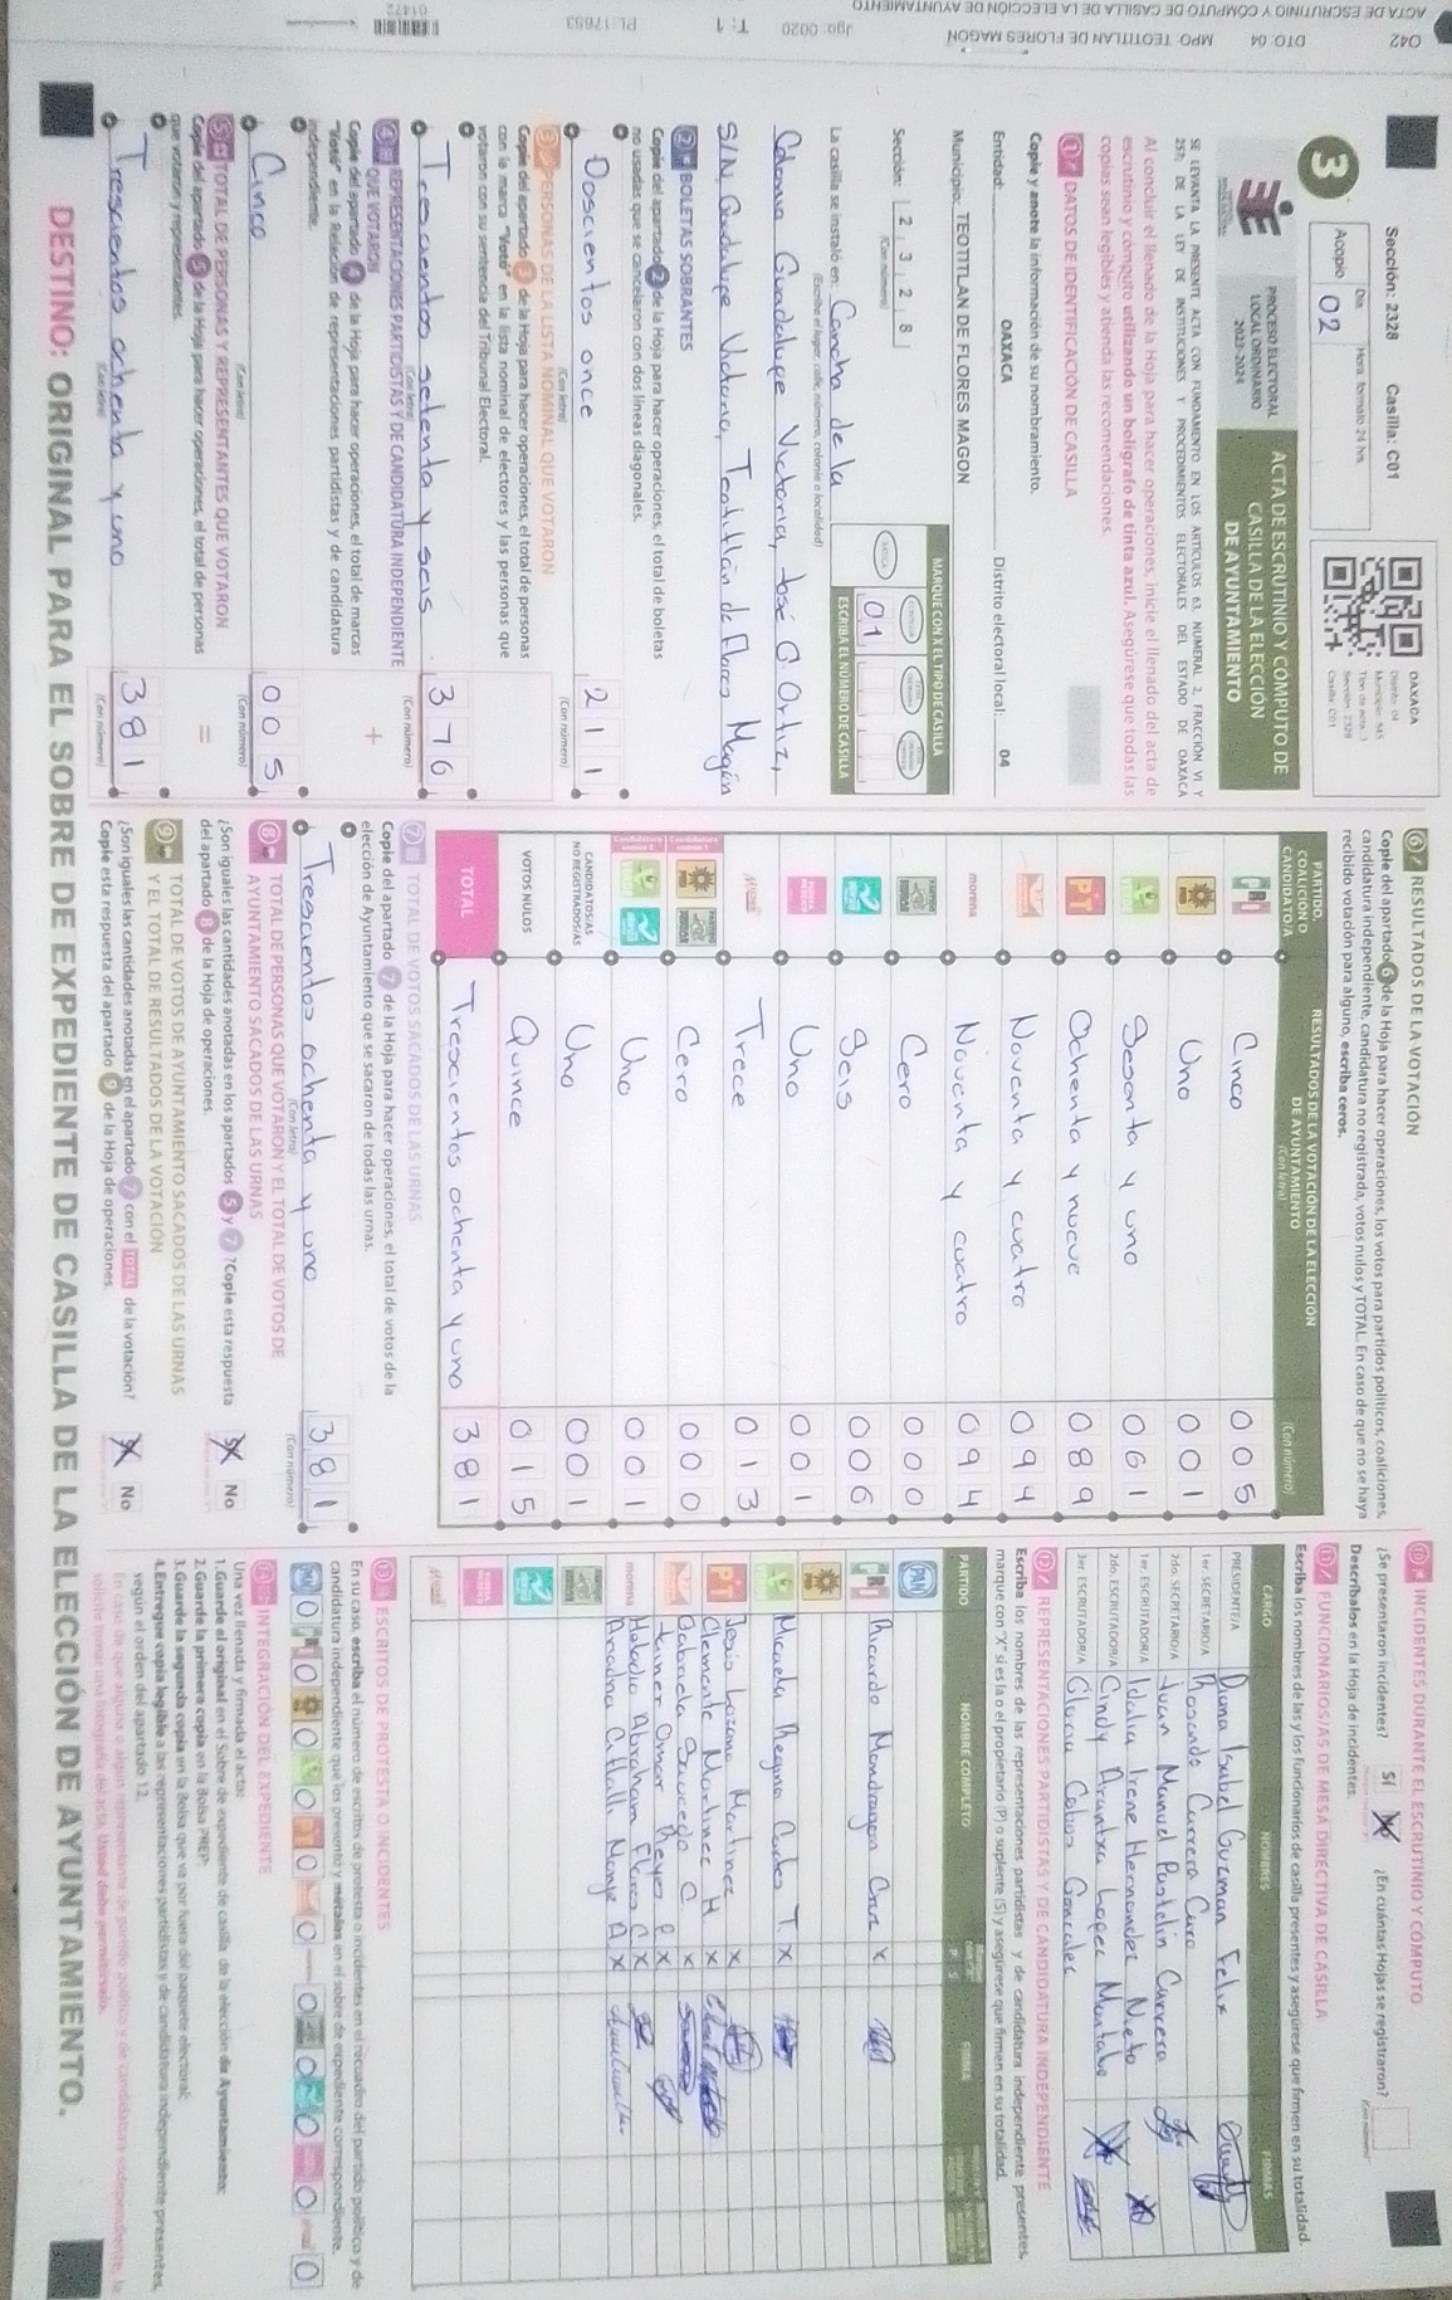 042 DTO: 04 MPO: TEOTITLAN DE FLORES MAGON Jgo: 0020 T: 1 PL: 17653 01472
ACTA DE ESCRUTINIO Y CÓMPUTO DE CASILLA DE LA ELECCIÓN DE AYUNTAMIENTO
Sección: 2328 Casilla: C01
3
Día Hora formato 24 hrs.
Acopio 02
OAXACA
Distrito: 04
Sección: 2328
Casilla: C01
PROCESO ELECTORAL
LOCAL ORDINARIO
2023-2024
ACTA DE ESCRUTINIO Y CÓMPUTO DE
CASILLA DE LA ELECCIÓN
DE AYUNTAMIENTO
SE LEVANTA LA PRESENTE ACTA CON FUNDAMENTO EN LOS ARTÍCULOS 63, NUMERAL 2, FRACCIÓN VI Y
257; DE LA LEY DE INSTITUCIONES Y PROCEDIMIENTOS ELECTORALES DEL ESTADO DE OAXACA
Al concluir el llenado de la Hoja para hacer operaciones, inicie el llenado del acta de
escrutinio y cómputo utilizando un bolígrafo de tinta azul. Asegúrese que todas las
copias sean legibles y atienda las recomendaciones.
1 DATOS DE IDENTIFICACIÓN DE CASILLA
Copie y anote la información de su nombramiento.
Entidad: OAXACA Distrito electoral local: 04
Municipio: TEOTITLAN DE FLORES MAGON
Sección: 2 3 2 8
(Con número)
MARQUE CON X EL TIPO DE CASILLA
BÁSICA
01
ESCRIBA EL NÚMERO DE CASILLA
La casilla se instaló en: Cancha de la
(Escriba el lugar, calle, número, colonia o localidad)
Colonia Guadalupe Victoria, José G. Ortiz,
S/N Guadalupe Victoria, Teotitlán de Flores Magón
2 BOLETAS SOBRANTES
Copie del apartado 2 de la Hoja para hacer operaciones, el total de boletas
no usadas que se cancelaron con dos líneas diagonales.
Doscientos once 2 1 1
(Con letra) (Con número)
3 PERSONAS DE LA LISTA NOMINAL QUE VOTARON
Copie del apartado 3 de la Hoja para hacer operaciones, el total de personas
con la marca "Votó" en la lista nominal de electores y las personas que
votaron con su sentencia del Tribunal Electoral.
Trescientos setenta y seis 3 7 6
(Con letra) (Con número)
4 REPRESENTACIONES PARTIDISTAS Y DE CANDIDATURA INDEPENDIENTE
QUE VOTARON
+
Copie del apartado 4 de la Hoja para hacer operaciones, el total de marcas
"Votó" en la Relación de representaciones partidistas y de candidatura
independiente.
Cinco 0 0 5
(Con letra) (Con número)
5 TOTAL DE PERSONAS Y REPRESENTANTES QUE VOTARON
=
Copie del apartado 5 de la Hoja para hacer operaciones, el total de personas
que votaron y representantes.
Trescientos ochenta y uno 3 8 1
(Con letra) (Con número)
6 RESULTADOS DE LA VOTACIÓN
Copie del apartado 6 de la Hoja para hacer operaciones, los votos para partidos políticos, coaliciones,
candidatura independiente, candidatura no registrada, votos nulos y TOTAL. En caso de que no se haya
recibido votación para alguno, escriba ceros.
PARTIDO, COALICIÓN O CANDIDATO/A
RESULTADOS DE LA VOTACIÓN DE LA ELECCIÓN DE AYUNTAMIENTO
(Con letra) (Con número)
PRI Cinco 0 0 5
PRD Uno 0 0 1
Sesenta y uno 0 6 1
PT Ochenta y nueve 0 8 9
Noventa y cuatro 0 9 4
morena Noventa y cuatro 0 9 4
Cero 0 0 0
Seis 0 0 6
Uno 0 0 1
Trece 0 1 3
Cero 0 0 0
Uno 0 0 1
CANDIDATOS/AS NO REGISTRADOS/AS Uno 0 0 1
VOTOS NULOS Quince 0 1 5
TOTAL Trescientos ochenta y uno 3 8 1
7 TOTAL DE VOTOS SACADOS DE LAS URNAS
Copie del apartado 7 de la Hoja para hacer operaciones, el total de votos de la
elección de Ayuntamiento que se sacaron de todas las urnas.
Trescientos ochenta y uno 3 8 1
(Con letra) (Con número)
8 TOTAL DE PERSONAS QUE VOTARON Y EL TOTAL DE VOTOS DE
AYUNTAMIENTO SACADOS DE LAS URNAS
¿Son iguales las cantidades anotadas en los apartados 5 y 7 ? Copie esta respuesta
del apartado 8 de la Hoja de operaciones.
X No
9 TOTAL DE VOTOS DE AYUNTAMIENTO SACADOS DE LAS URNAS
Y EL TOTAL DE RESULTADOS DE LA VOTACIÓN
¿Son iguales las cantidades anotadas en el apartado 7 con el TOTAL de la votación?
Copie esta respuesta del apartado 9 de la Hoja de operaciones.
X No
10 INCIDENTES DURANTE EL ESCRUTINIO Y CÓMPUTO
¿Se presentaron incidentes? Sí X ¿En cuántas Hojas se registraron?
(Con número)
Descríbalos en la Hoja de incidentes.
11 FUNCIONARIOS/AS DE MESA DIRECTIVA DE CASILLA
Escriba los nombres de las y los funcionarios de casilla presentes y asegúrese que firmen en su totalidad.
CARGO NOMBRES FIRMAS
PRESIDENTE/A Diana Isabel Guzman Felix
1er. SECRETARIO/A Rosendo Carrera Caro
2do. SECRETARIO/A Juan Manuel Pastelin Carrera
1er. ESCRUTADOR/A Idalia Irene Hernandez Nieto
2do. ESCRUTADOR/A Cindy Arantxa Lopez Montalvo
3er. ESCRUTADOR/A Gloria Cobos Gonzalez
12 REPRESENTACIONES PARTIDISTAS Y DE CANDIDATURA INDEPENDIENTE
Escriba los nombres de las representaciones partidistas y de candidatura independiente presentes,
marque con "X" si es la o el propietario (P) o suplente (S) y asegúrese que firmen en su totalidad.
PARTIDO NOMBRE COMPLETO P S FIRMA
PAN
PRI Ricardo Mondragon Cruz X
PRD
Micaela Regina Cortes T. X
Jesús Lozano Martinez X
PT Clemente Martinez H X
Gabriela Saucedo C X
Omar Reyes R X
Heladio Abraham Flores C X
morena Ariadna Citlalli Monge A X
13 ESCRITOS DE PROTESTA O INCIDENTES
En su caso, escriba el número de escritos de protesta o incidentes en el recuadro del partido político y de
candidatura independiente que los presentó y métalos en el sobre de expediente correspondiente.
PAN 0 PRI 0 0 0 PT 0 0 0 0 0 0 0
14 INTEGRACIÓN DEL EXPEDIENTE
Una vez llenada y firmada el acta:
1.Guarde el original en el Sobre de expediente de casilla de la elección de Ayuntamiento;
2.Guarde la primera copia en la Bolsa PREP;
3.Guarde la segunda copia en la Bolsa que va por fuera del paquete electoral;
4.Entregue copia legible a las representaciones partidistas y de candidatura independiente presentes,
según el orden del apartado 12.
En caso de que alguna o algún representante de partido político y de candidatura independiente, le
solicite tomar una fotografía del acta, Usted debe permitírselo.
DESTINO: ORIGINAL PARA EL SOBRE DE EXPEDIENTE DE CASILLA DE LA ELECCIÓN DE AYUNTAMIENTO.